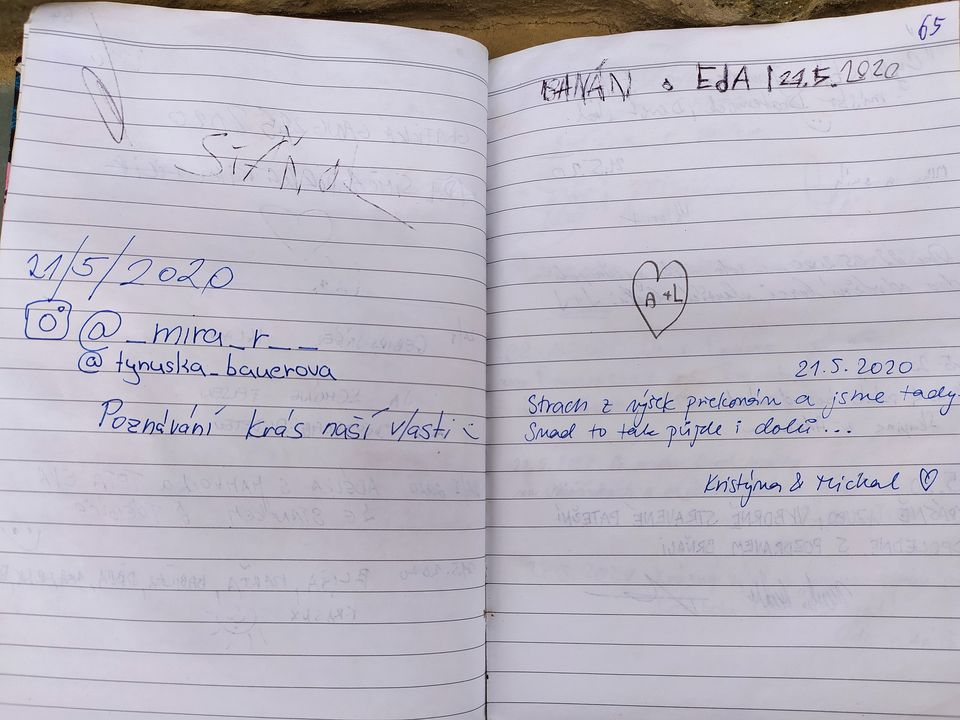 21/5/2020
@_mira_r__
@tynuska_bauerova
Poznávání krás naší vlasti :
65
BANÁN a EdA | 21.5.2020
A+L
21.5.2020
Strach z výšek překonám a jsme tady.
Snad to tak půjde i dolů...
Kristýna & Michal ♡